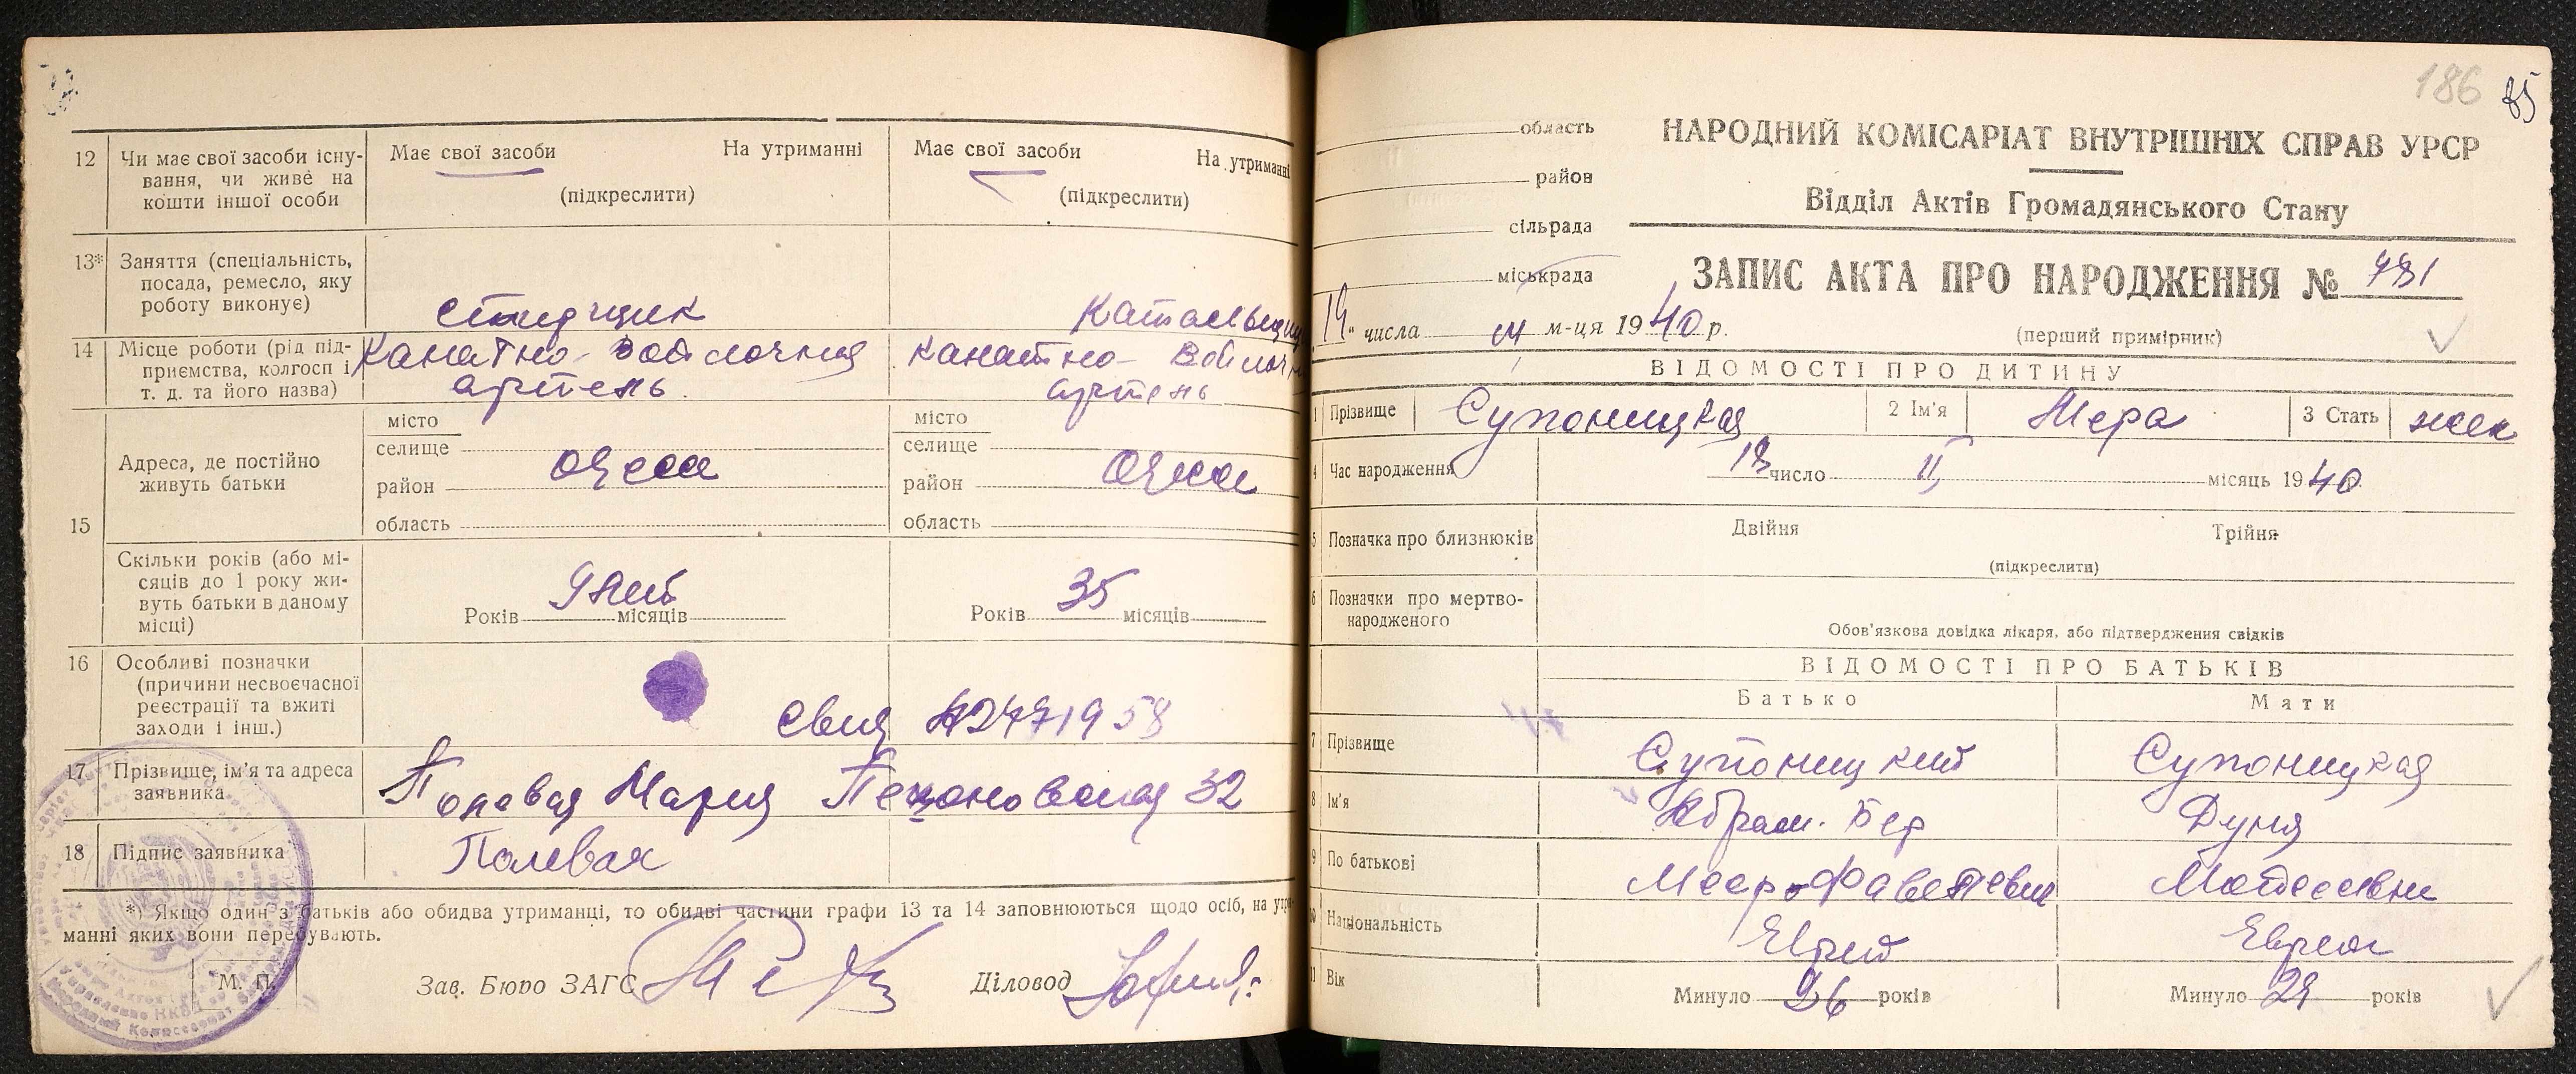 12
Чи має свої засоби існу-
вання, чи живе на
кошти іншої особи
Має свої засоби
На утриманні
(підкреслити)
Має свої засоби
На утриманні
(підкреслити)
13*
Заняття (спеціальність,
посада, ремесло, яку
роботу виконує)
14
Місце роботи (рід під-
приємства, колгосп і
т. д. та його назва)
Канатно-войлочная
артель
Канатно-
артель
15
Адреса, де постійно
живуть батьки
місто
селище
район
область
Одесса
місто
селище
район
область
Одесса
Скільки років (або мі-
сяців до 1 року жи-
вуть батьки в даному
місці)
9 лет
Років місяців
35
Років місяців
16
Особливі позначки
(причини несвоєчасної
реєстрації та вжиті
заходи і інш.)
17
Прізвище, ім'я та адреса
заявника
Мария 32
18
Підпис заявника
Полевая
*) Якщо один з батьків або обидва утриманці, то обидві частини графи 13 та 14 заповнюються щодо осіб, на утри-
манні яких вони перебувають.
М. П.
Зав. Бюро ЗАГС
Діловод
186
85
область
район
сільрада
міськрада
НАРОДНИЙ КОМІСАРІАТ ВНУТРІШНІХ СПРАВ УРСР
Відділ Актів Громадянського Стану
ЗАПИС АКТА ПРО НАРОДЖЕННЯ № 731
числа м-ця 1940 р.
(перший примірник)
ВІДОМОСТІ ПРО ДИТИНУ
1 Прізвище Супоницкая 2 Ім'я Мера 3 Стать жен
4 Час народження число II місяць 1940
5 Позначка про близнюків Двійня Трійня
(підкреслити)
6 Позначки про мертво-
народженого
Обов'язкова довідка лікаря, або підтвердження свідків
ВІДОМОСТІ ПРО БАТЬКІВ
Батько Мати
7 Прізвище Супоницкий Супоницкая
8 Ім'я Абрам-Бер Дуня
9 По батькові
10 Національність Еврей Еврей
11 Вік Минуло 26 років Минуло років